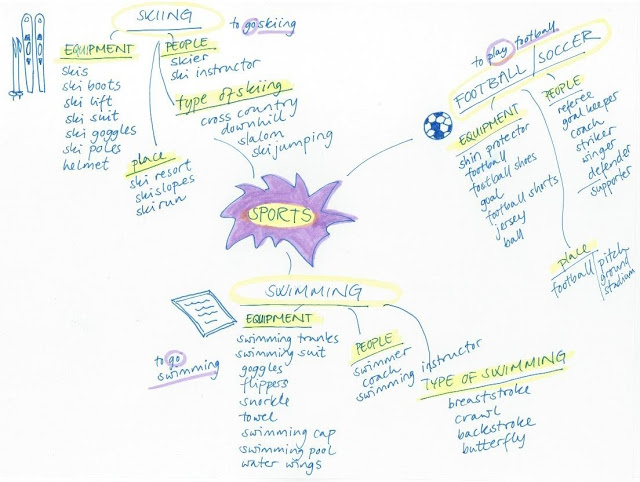 SKIING
to go skiing
EQUIPMENT
skis
ski boots
ski lift
ski suit
ski goggles
ski poles
helmet
PEOPLE
skier
ski instructor
type of skiing
cross country
downhill
slalom
ski jumping
place
ski resort
ski slopes
ski run
to play football
FOOTBALL/SOCCER
EQUIPMENT
shin protector
football
football shoes
goal
football shorts
jersey
ball
PEOPLE
referee
goal keeper
coach
striker
winger
defender
supporter
place
football/pitch
ground
stadium
SPORTS
SWIMMING
to go
swimming
EQUIPMENT
swimming trunks
swimming suit
goggles
flippers
snorkle
towel
swimming cap
swimming pool
water wings
PEOPLE
swimmer
coach
swimming instructor
TYPE OF SWIMMING
breaststroke
crawl
backstroke
butterfly